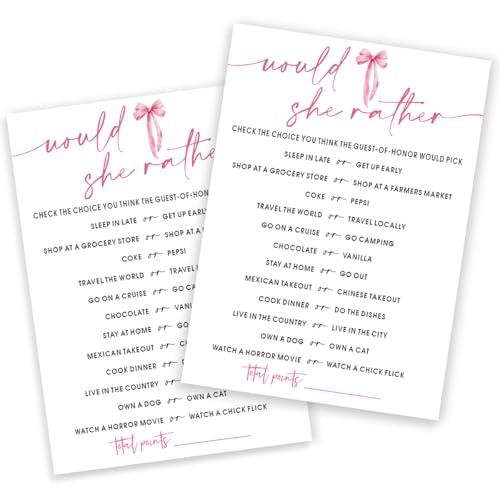 would
she rather
CHECK THE CHOICE YOU THINK THE GUEST-OF-HONOR WOULD PICK
SLEEP IN LATE or GET UP EARLY
SHOP AT A GROCERY STORE or SHOP AT A FARMERS MARKET
COKE or PEPSI
TRAVEL THE WORLD or TRAVEL LOCALLY
GO ON A CRUISE or GO CAMPING
CHOCOLATE or VANILLA
STAY AT HOME or GO OUT
MEXICAN TAKEOUT or CHINESE TAKEOUT
COOK DINNER or DO THE DISHES
LIVE IN THE COUNTRY or LIVE IN THE CITY
OWN A DOG or OWN A CAT
WATCH A HORROR MOVIE or WATCH A CHICK FLICK
total points
would
she rather
CHECK THE CHOICE YOU THINK THE GUEST-OF-HONOR
SLEEP IN LATE or GET UP EARLY
SHOP AT A GROCERY STORE or SHOP AT A
COKE or PEPSI
TRAVEL THE WORLD or TRAVEL
GO ON A CRUISE or GO CA
CHOCOLATE or VAN
STAY AT HOME or GO
MEXICAN TAKEOUT or CH
COOK DINNER or D
LIVE IN THE COUNTRY or LIV
OWN A DOG or OWN A CAT
WATCH A HORROR MOVIE or WATCH A CHICK FLICK
total points